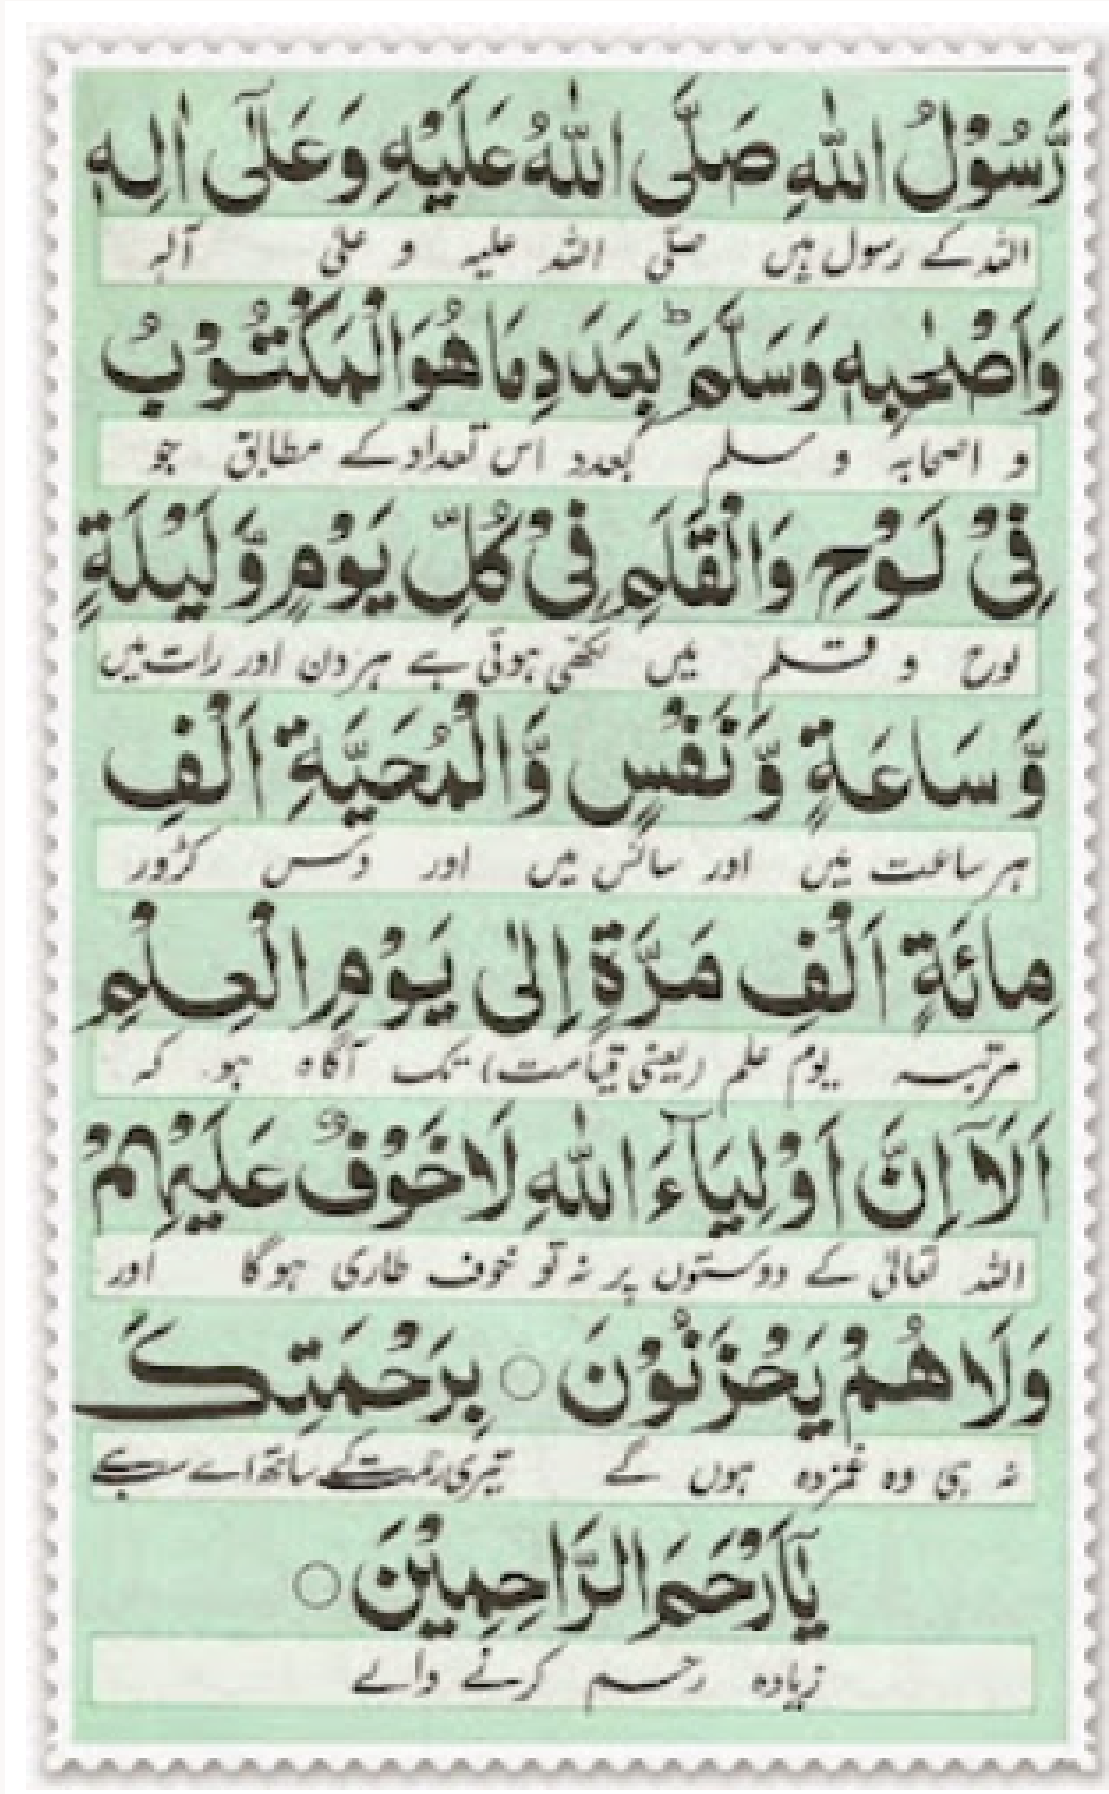 رَّسُوْلُ اللّٰهِ صَلَّى اللّٰهُ عَلَيْهِ وَعَلٰٓى اٰلِهٖ
اللہ کے رسول ہیں صلّی اللہ علیہ و علٰی آلہٖ
وَاَصْحٰبِهٖ وَسَلَّمَ ؕ بِعَدَدِ مَا هُوَ الْمَكْتُوْبُ
و اصحابہ وسلم بعدد اس تعداد کے مطابق جو
فِیْ لَوْحِ وَالْقَلَمِ فِیْ كُلِّ يَوْمٍ وَّلَيْلَةٍ
لوح و قلم میں لکھی ہوئی ہے ہر دن اور رات میں
وَّسَاعَةٍ وَّنَفْسٍ وَّالْمُحَيَّةِ اَلْفِ
ہر ساعت میں اور سانس میں اور دس کڑور
مِائَةٍ اَلْفِ مَرَّةٍ اِلٰى يَوْمِ الْعِلْمِ
مرتبہ یوم علم (یعنی قیامت) تک آگاہ ہو کہ
اَلَآ اِنَّ اَوْلِيَآءَ اللّٰهِ لَا خَوْفٌ عَلَيْهِمْ
اللہ تعالٰی کے دوستوں پر نہ تو خوف طاری ہوگا اور
وَلَا هُمْ يَحْزَنُوْنَ ○ بِرَحْمَتِكَ
نہ ہی وہ غمزدہ ہوں گے تیری رحمت کے ساتھ اے سب سے
يَآ اَرْحَمَ الرَّاحِمِيْنَ ○
زیادہ رحم کرنے والے